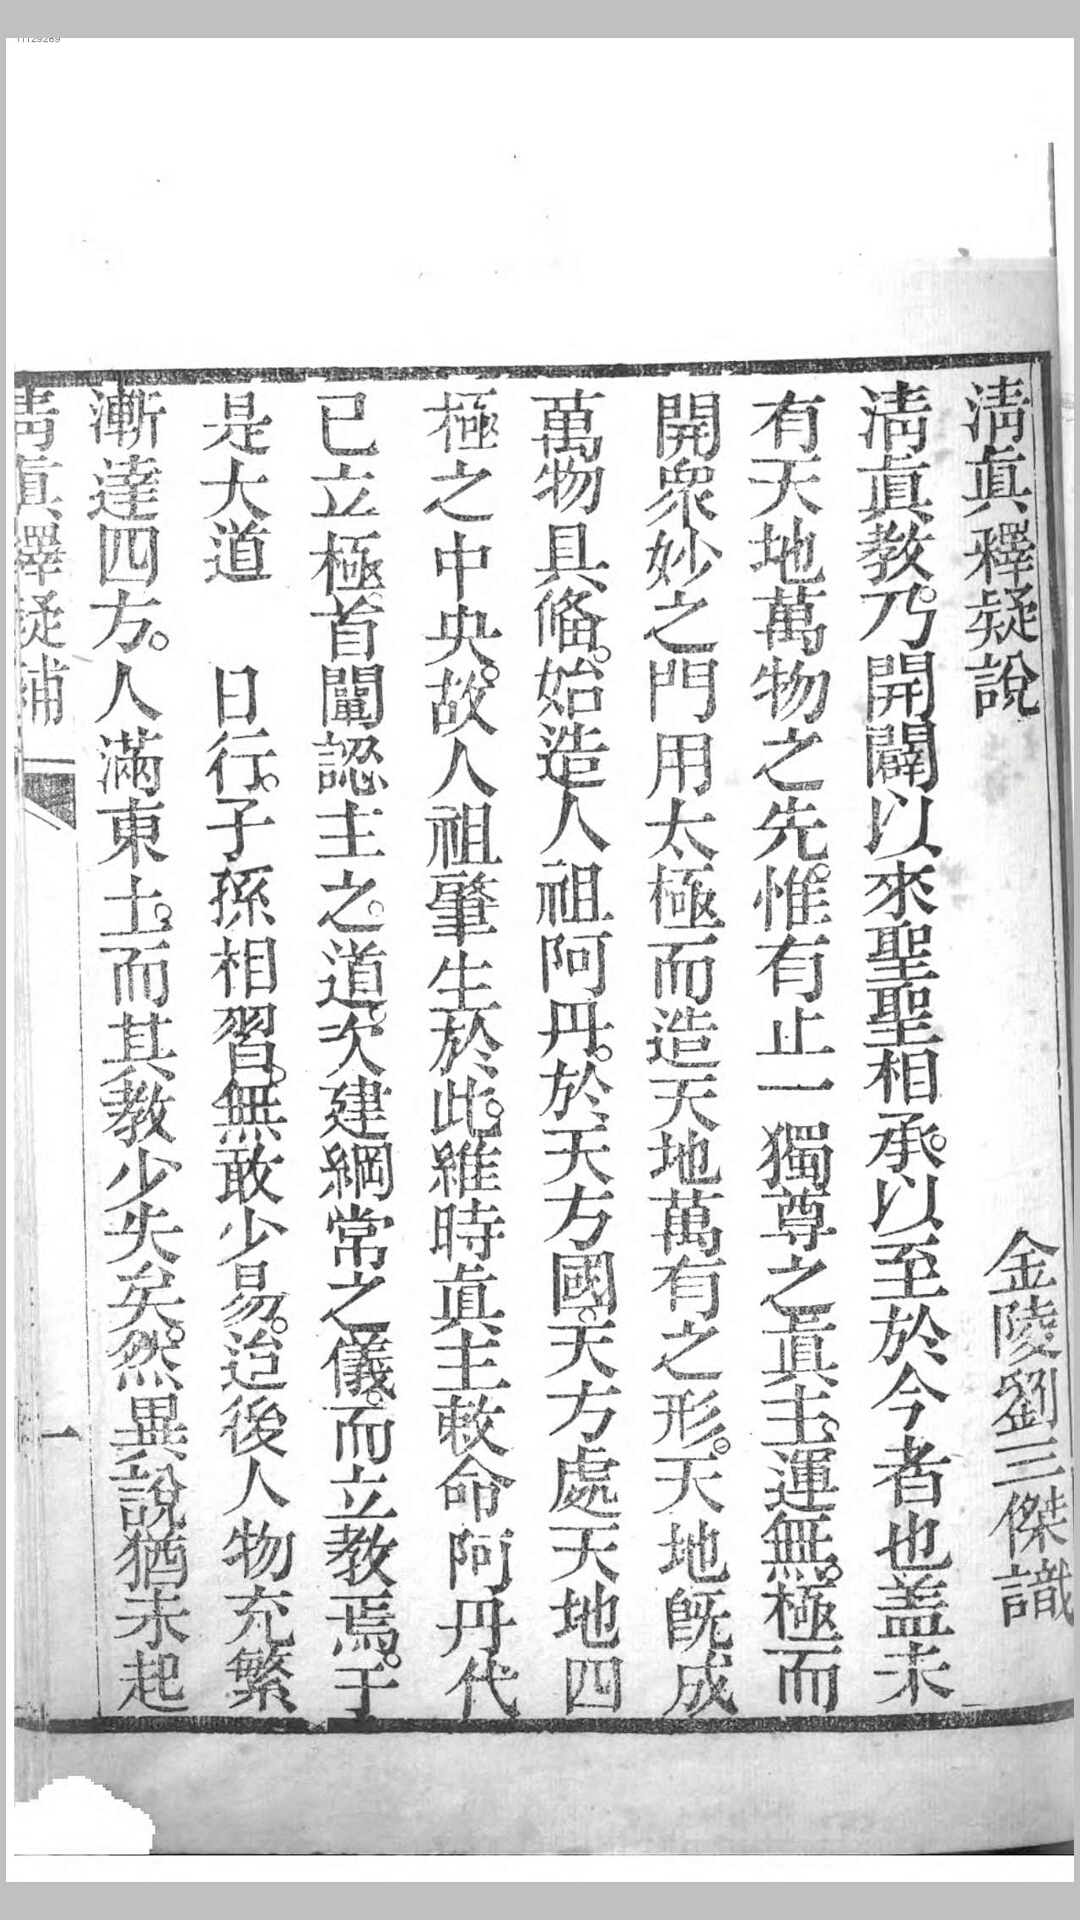 11129289
清眞釋疑說
金陵劉三傑識
清眞教。乃開闢以來聖聖相承。以至於今者也盖未
有天地萬物之先。惟有止一獨尊之眞主。運無。極而
開衆妙之門用太極而造天地萬有之形。天地旣成
萬物具備。始造人祖阿丹。於天方國。天方處天地四
極之中央。故人祖肇生於此。維時眞主敕命阿丹代
已立極。首闡認主之。道。次建綱常之儀。而立教焉。于
是大道 日行。子孫相習。無敢少易。迨後人物充繁
漸達四方。人滿東土。而其教少失矣。然異說猶未起
清眞釋疑補
一